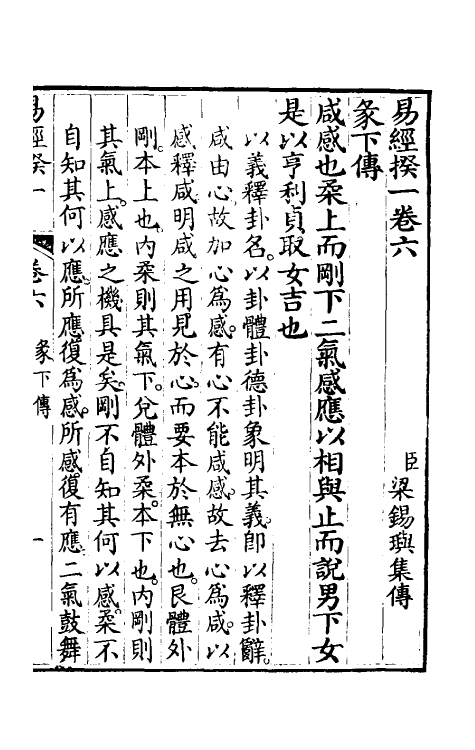 易經揆一卷六
臣梁錫璵集傳
彖下傳
咸感也柔上而剛下二氣感應以相與止而說男下女
是以亨利貞取女吉也
以義釋卦名。以卦體卦德卦象明其義。即以釋卦辭。
咸由心故加心爲感。有心不能咸感。故去心爲咸。以
感釋咸明咸之用見於心。而要本於無心也。艮體外
剛。本上也。内柔則其氣下。兌體外柔。本下也。内剛則
其氣上。感應之機具是矣。剛不自知其何以感。柔不
自知其何以應。所應復爲感。所感復有應二氣鼓舞
易經揆一 卷六 彖下傳 一